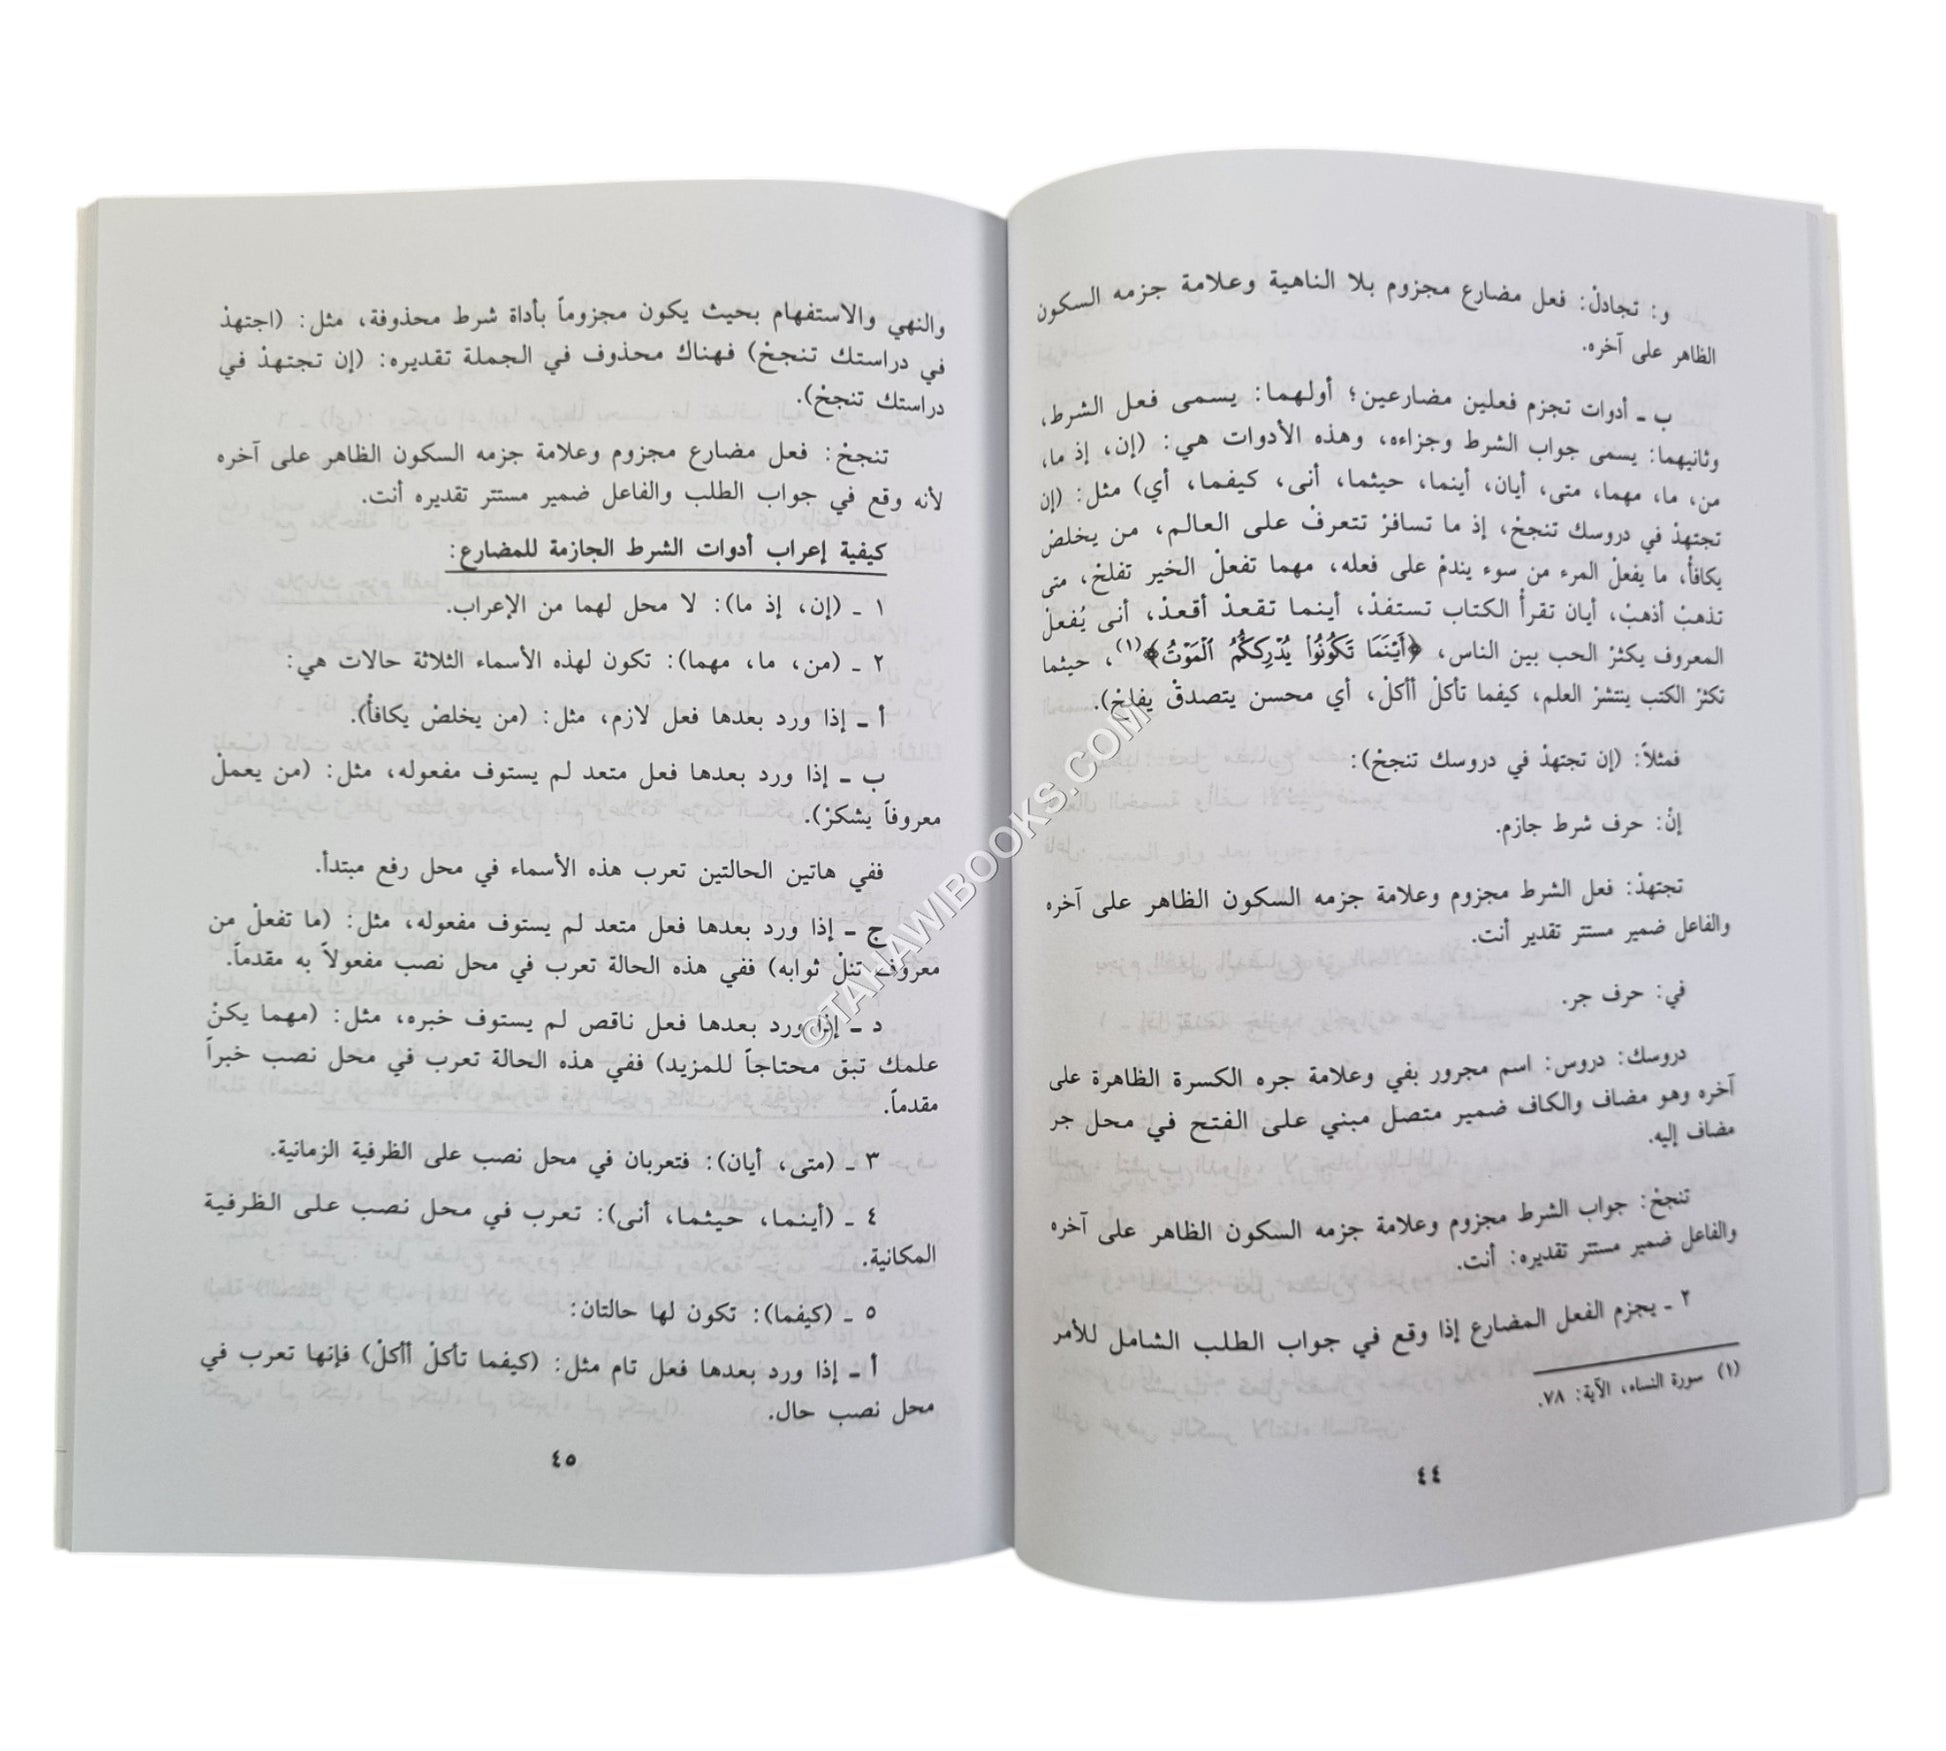 و: تجادلْ: فعل مضارع مجزوم بلا الناهية وعلامة جزمه السكون
الظاهر على آخره.
ب ـ أدوات تجزم فعلين مضارعين؛ أولهما: يسمى فعل الشرط،
وثانيهما: يسمى جواب الشرط وجزاءه، وهذه الأدوات هي: (إن، إذ ما،
من، ما، مهما، متى، أيان، أينما، حيثما، أنى، كيفما، أي) مثل: (إن
تجتهدْ في دروسك تنجحْ، إذ ما تسافرْ تتعرفْ على العالم، من يخلصْ
يكافأْ، ما يفعلْ المرء من سوء يندمْ على فعله، مهما تفعلْ الخير تفلحْ، متى
تذهبْ أذهبْ، أيان تقرأْ الكتاب تستفدْ، أينما تقعدْ أقعدْ، أنى يُفعلْ
المعروف يكثرْ الحب بين الناس، ﴿أَيْنَمَا تَكُونُوا يُدْرِككُّمُ الْمَوْتُ﴾(١)، حيثما
تكثرْ الكتب ينتشرْ العلم، كيفما تأكلْ أأكلْ، أي محسن يتصدقْ يفلحْ).
فمثلاً: (إن تجتهدْ في دروسك تنجحْ):
إنْ: حرف شرط جازم.
تجتهدْ: فعل الشرط مجزوم وعلامة جزمه السكون الظاهر على آخره
والفاعل ضمير مستتر تقدير أنت.
في: حرف جر.
دروسك: دروس: اسم مجرور بفي وعلامة جره الكسرة الظاهرة على
آخره وهو مضاف والكاف ضمير متصل مبني على الفتح في محل جر
مضاف إليه.
تنجحْ: جواب الشرط مجزوم وعلامة جزمه السكون الظاهر على آخره
والفاعل ضمير مستتر تقديره: أنت.
٢ ـ يجزم الفعل المضارع إذا وقع في جواب الطلب الشامل للأمر
(١) سورة النساء، الآية: ٧٨.
٤٤
والنهي والاستفهام بحيث يكون مجزوماً بأداة شرط محذوفة، مثل: (اجتهدْ
في دراستك تنجحْ) فهناك محذوف في الجملة تقديره: (إن تجتهدْ في
دراستك تنجحْ).
تنجحْ: فعل مضارع مجزوم وعلامة جزمه السكون الظاهر على آخره
لأنه وقع في جواب الطلب والفاعل ضمير مستتر تقديره أنت.
كيفية إعراب أدوات الشرط الجازمة للمضارع:
١ ـ (إن، إذ ما): لا محل لهما من الإعراب.
٢ ـ (من، ما، مهما): تكون لهذه الأسماء الثلاثة حالات هي:
أ ـ إذا ورد بعدها فعل لازم، مثل: (من يخلصْ يكافأْ).
ب ـ إذا ورد بعدها فعل متعد لم يستوف مفعوله، مثل: (من يعملْ
معروفاً يشكرْ).
ففي هاتين الحالتين تعرب هذه الأسماء في محل رفع مبتدأ.
ج ـ إذا ورد بعدها فعل متعد لم يستوف مفعوله، مثل: (ما تفعلْ من
معروف تنلْ ثوابه) ففي هذه الحالة تعرب في محل نصب مفعولاً به مقدماً.
د ـ إذا ورد بعدها فعل ناقص لم يستوف خبره، مثل: (مهما يكنْ
علمك تبق محتاجاً للمزيد) ففي هذه الحالة تعرب في محل نصب خبراً
مقدماً.
٣ ـ (متى، أيان): فتعربان في محل نصب على الظرفية الزمانية.
٤ ـ (أينما، حيثما، أنى): تعرب في محل نصب على الظرفية
المكانية.
٥ ـ (كيفما): تكون لها حالتان:
أ ـ إذا ورد بعدها فعل تام مثل: (كيفما تأكلْ أأكلْ) فإنها تعرب في
محل نصب حال.
٤٥
©TAHAWIBOOKS.COM